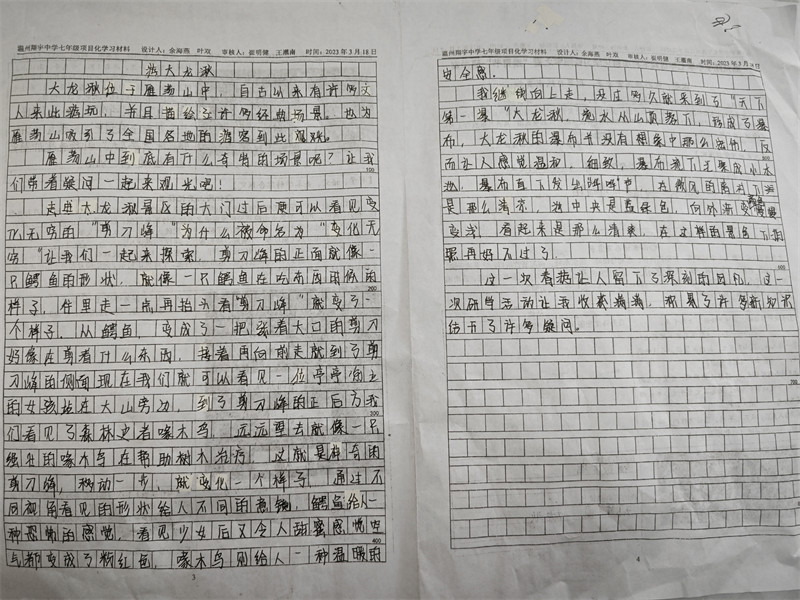 温州翔宇中学七年级项目化学习材料 设计人：余海燕 叶双 审核人：崔明健 王灌南 时间：2023年3月18日
游大龙湫
大龙湫位于雁荡山中，自古以来有许多文
人来此游玩，并且描绘了许多经典场景。也为
雁荡山吸引了全国各地的游客到此观球。
雁荡山中到底有什么奇特的场景呢？让我
们带着疑问一起来观光吧！
走进大龙湫景区的大门过后便可以看见变
化无穷的“剪刀峰”为什么被命名为“变化无
穷”让我们一起来探索，剪刀峰的正面就像一
只鳄鱼的形状，就像一只鳄鱼在吃东西的
样子，往里走一点再抬头看“剪刀峰”就变了一
个样子，从鳄鱼，变成了一把张着大口的剪刀
好像在剪着什么东西，接着再向前走就到了剪
刀峰的侧面现在我们就可以看见一位亭亭
的女孩站在大山旁边，到了剪刀峰的正后方我
们看见了森林史者啄木鸟，远远望去就像一只
强壮的啄木鸟在帮助树木治疗，这就是神奇的
剪刀峰，移动一步，就变化一个样子，通过不
同视角看见的形状给人不同的意境，鳄鱼给人一
种恐怖的感觉，看见少女后又令人甜蜜感觉空
气都变成了粉红色，啄木鸟则给人一种温暖的
100
200
300
400
3
温州翔宇中学七年级项目化学习材料 设计人：余海燕 叶双 审核人：崔明健 王灌南 时间：2023年3月18日
安全感。
我继续向上走，没过多久就来到了“天下
第一瀑”大龙湫，流水从山顶落下，形成了瀑
布，大龙湫的瀑布并没有想象中那么，反
而让人感觉温和，细致，瀑布流下汇集成小水
池，瀑布直下发出哗哗声，为
是那么清凉，池中央是蓝绿色，向外渐变
变浅，看起来是那么清爽，在这样的景色下
再好不过了。
这一次着实让人留下了深刻的印象，这一
次研学活动让我收获满满，积累了许多新知识
结开了许多疑问。
500
600
700
4